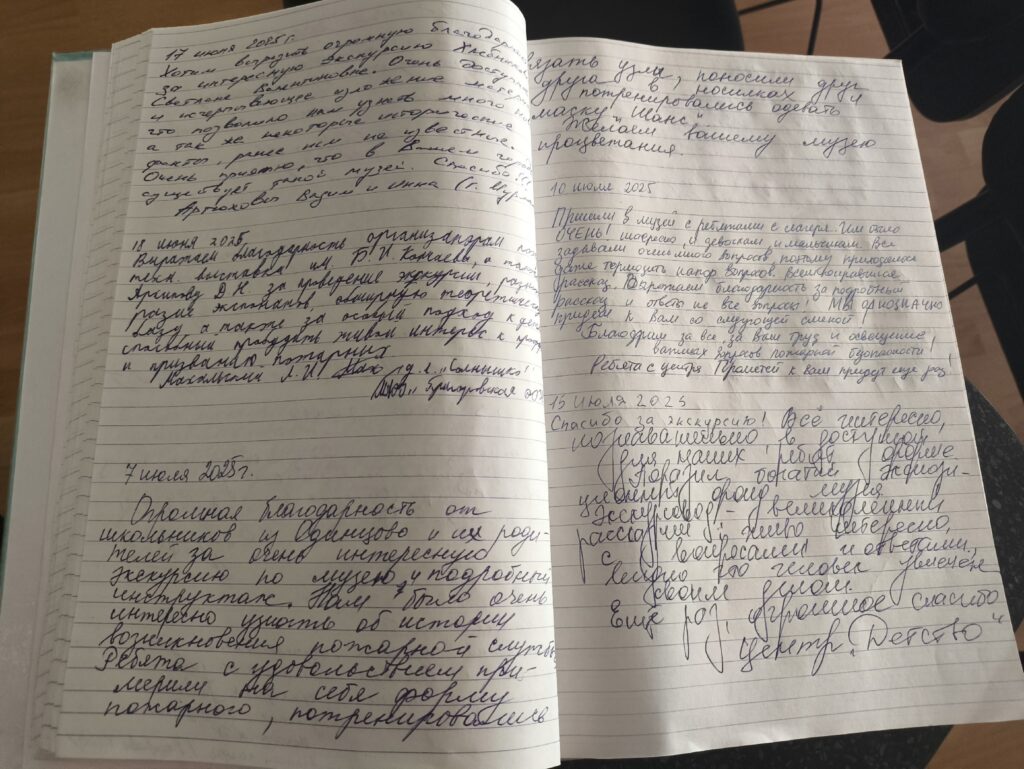 17 июня 2025 г.
Хотим выразить огромную благодарн
за интересную экскурсию
Светлане Вениаминовне. Очень
и исчерпывающее изложение матери
что позволило нам узнать много
а так же некоторые исторические
факты, ранее нам не известные.
Очень приятно, что в Вашем городе
существует такой музей. Спасибо!!!
Вадим и Инна (г. Мурм
18 июня 2025
Выражаем благодарность организаторам
выставки им. Б.И. Кончаева, а также
Архипову Д.Н. за проведение экскурсии,
экспонатов, обширную теоретичес
базу, а также за особый подход к детям
живой интерес к
и призванию пожарных
"Солнышко"
7 июля 2025г.
Огромная благодарность от
школьников из Одинцово и их роди-
телей за очень интересную
экскурсию по музею и подробный
инструктаж. Нам было очень
интересно узнать об истории
возникновения пожарной службы
Ребята с удовольствием при-
мерили на себя форму
пожарного, потренировались
вязать узлы, поносили друг
друга в носилках и
потренировались одевать
маску "Шанс".
Желаем вашему музею
процветания.
10 июля 2025
Пришли в музей с ребятами с лагеря. Им было
ОЧЕНЬ! интересно и девочкам, и мальчикам. Все
задавали очень много вопросов, поэтому приходилось
даже тормозить напор вопросов,
рассказ. Выражаем благодарность за подробный
рассказ и ответы на все вопросы! МЫ ОДНОЗНАЧНО
придем к Вам со следующей сменой
Благодрим за все, за Ваш труд и освещение
важных вопросов пожарной безопасности!
Ребята с центра Прометей к Вам придут еще раз!
15 июля 2025
Спасибо за экскурсию! Всё интересно,
познавательно в доступной
для наших ребят форме
Поразил богатый экспози-
ционный фонд музея.
Экскурсовод - великолепный
рассказчик; живо интересно,
с вопросами и ответами,
видно что человек увлечен
своим делом.
Ещё раз, огромное спасибо
Центр "Детство"